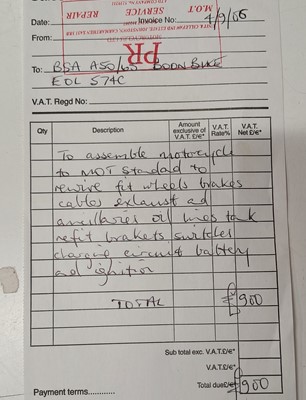 M.O.T
SERVICE
REPAIR
PR
Date: Invoice No: 4/9/06
From:
To: BSA A50/65 BODN BIKE
EDL 574C
V.A.T. Regd No:
Qty Description Amount exclusive of V.A.T. £/€* V.A.T. Rate% V.A.T. Net £/€*
To assemble motorcycle
to MOT Standad to
rewire fit wheels brakes
cables exhaust ad
ancillaries oil lines tank
refit brakets switches
charging circuit battery
ad ignition
TOTAL £900
Sub total exc. V.A.T.£/€*
V.A.T.£/€*
Total due£/€* £900
Payment terms............